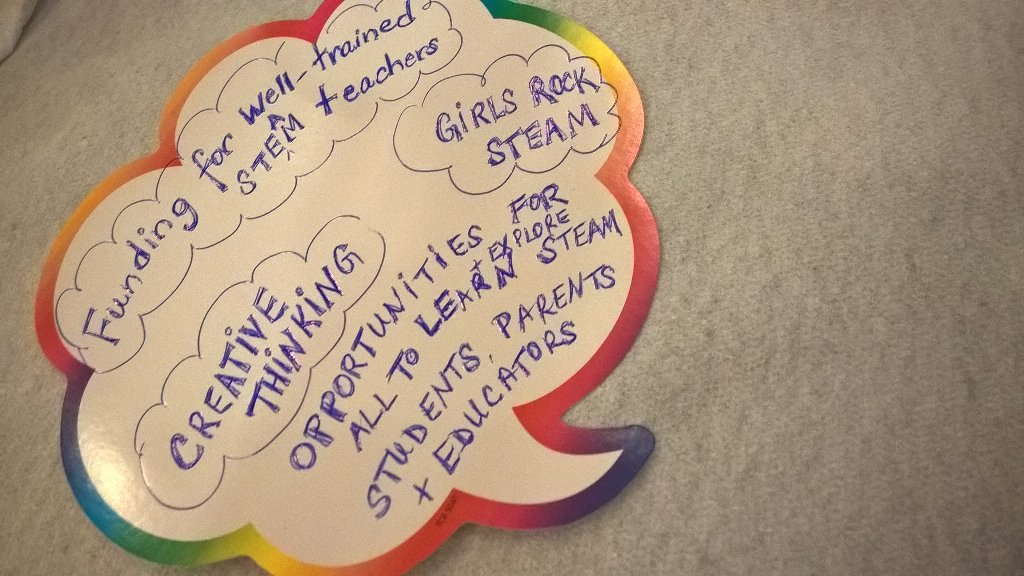 Funding for well-trained
STEAM teachers
GIRLS ROCK
STEAM
CREATIVE
THINKING
OPPORTUNITIES FOR
ALL TO LEARN + EXPLORE STEAM
STUDENTS, PARENTS
+ EDUCATORS